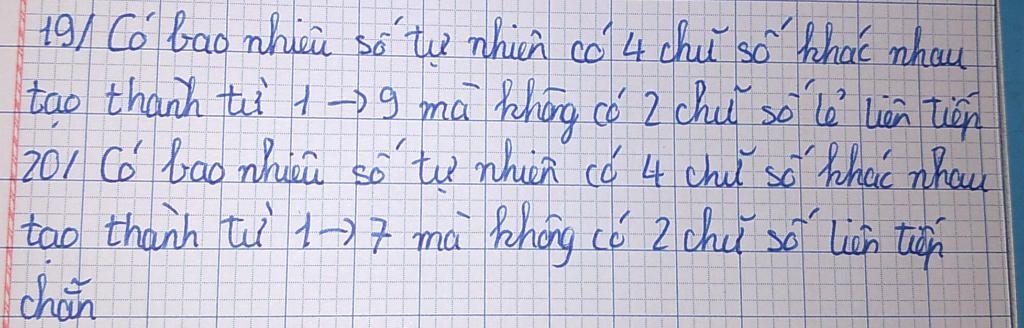 19/ Có bao nhiêu số tự nhiên có 4 chữ số khác nhau
tạo thành từ 1 → 9 mà không có 2 chữ số lẻ liên tiếp
20/ Có bao nhiêu số tự nhiên có 4 chữ số khác nhau
tạo thành từ 1 → 7 mà không có 2 chữ số liên tiếp
chẵn